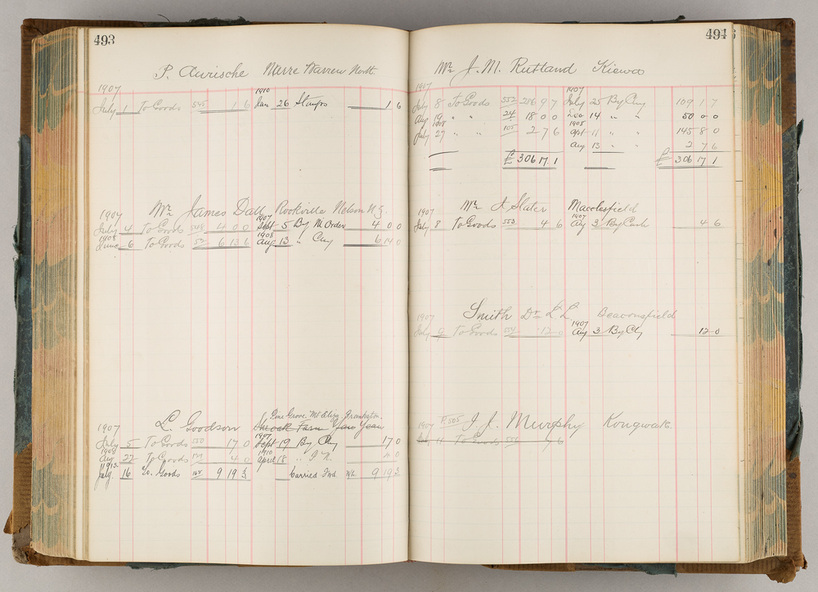 493
P. Aurische Narre Warren North
1907 1910
July 1 To Goods 545 1 6 Jan 26 Stamps 1 6
1907 Mr James Dall Rookville Nelson N.Z. 1907
July 4 To Goods 4 0 0 Sept 5 By M. Order 4 0 0
1908 1908
June 6 To Goods 6 13 6 Aug 13 " Chq
1907 L. Goodson
July 5 To Goods 550 17 0 Sept 19 By Chq 17 0
1908 1910
Aug 27 To Goods 4 0 April 18 4 0
16 To Goods 9 19 3 Carried Fwd 9 19 3
494
Mr J. M. Rutland Kiewa
1907 1907
July 8 To Goods 552 286 9 7 July 25 By Chq 109 1 7
Aug " " 24 18 0 0 14 " " 50 0 0
1908 1908
July 27 " " 105 2 7 6 Apl 11 " 145 8 0
Aug 13 " 2 7 6
£ 306 17 1 £ 306 17 1
1907 Mr A Slater Macclesfield 1907
July 8 To Goods 553 4 6 Aug 3 By Cash 4 6
1907 Smith Dr L. L. Beaconsfield 1907
July 9 To Goods 554 12 0 Aug 3 By Chq 12 0
1907 F 505 J. J. Murphy Kongwak
11 To Goods 556 6